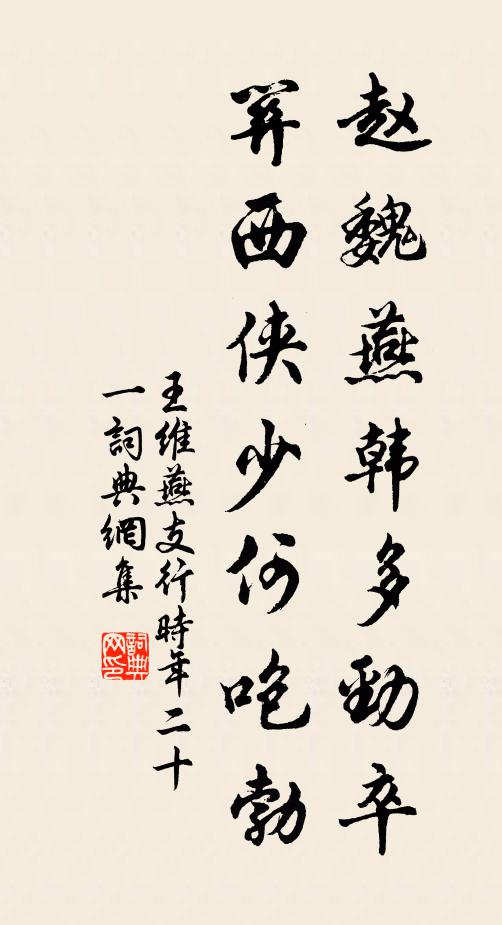 赵魏燕韩多勁卒
關西侠少何咆勃
王維燕支行時年二十
一詞典網集
詞典網印